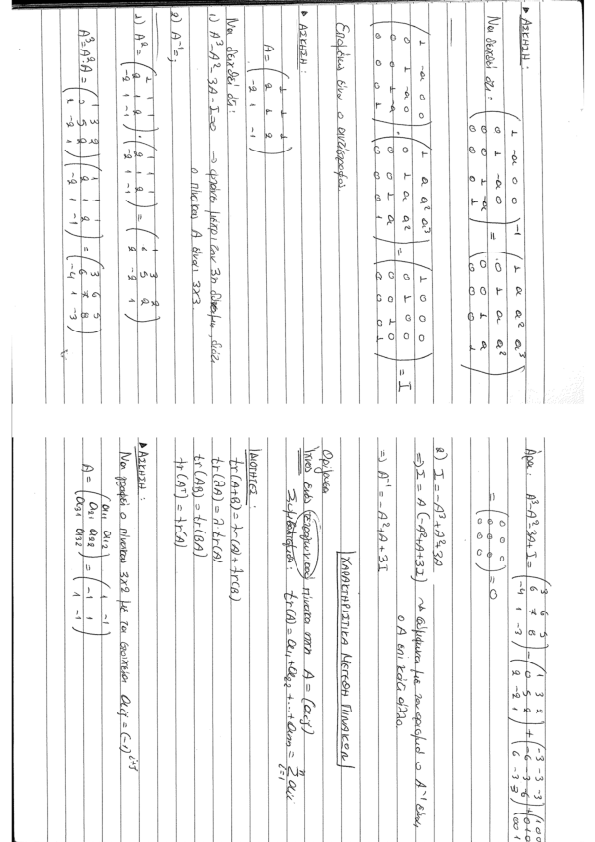 ▶ ΑΣΚΗΣΗ:
Να δειχθεί ότι: (1 -a 0 0 / 0 1 -a 0 / 0 0 1 -a / 0 0 0 1)⁻¹ = (1 a a² a³ / 0 1 a a² / 0 0 1 a / 0 0 0 1)
(1 -a 0 0 / 0 1 -a 0 / 0 0 1 -a / 0 0 0 1) · (1 a a² a³ / 0 1 a a² / 0 0 1 a / 0 0 0 1) = (1 0 0 0 / 0 1 0 0 / 0 0 1 0 / 0 0 0 1) = I
Επομένως είναι ο αντίστροφος
▶ ΑΣΚΗΣΗ:
A = (1 1 1 / 2 1 2 / -2 1 -1)
Να δειχθεί ότι:
1) A³-A²-3A-I=0 → φτάνει μέχρι την 3η δύναμη, διότι
ο πίνακας Α είναι 3x3.
2) A⁻¹=;
1) A² = (1 1 1 / 2 1 2 / -2 1 -1) · (1 1 1 / 2 1 2 / -2 1 -1) = (1 3 2 / 0 5 2 / 2 -2 1)
A³=A²·A = (1 3 2 / 0 5 2 / 2 -2 1) (1 1 1 / 2 1 2 / -2 1 -1) = (3 6 5 / 6 7 8 / -4 1 -3)
Άρα: A³-A²-3A+I = (3 6 5 / 6 7 8 / -4 1 -3) - (1 3 2 / 0 5 2 / 2 -2 1) + (-3 -3 -3 / -6 -3 -6 / 6 -3 3) + (1 0 0 / 0 1 0 / 0 0 1)
= (0 0 0 / 0 0 0 / 0 0 0) = 0
2) I = -A³+A²+3A
⇒ I = A(-A²+A+3I) → σύμφωνα με τον ορισμό ο A⁻¹ είναι
ο Α επί κάτι άλλο
⇒ A⁻¹ = -A²+A+3I
ΧΑΡΑΚΤΗΡΙΣΤΙΚΑ ΜΕΓΕΘΗ ΠΙΝΑΚΩΝ
Ορίζουσα
Ίχνος ενός τετραγωνικού πίνακα nxn A = (aij)
Συμβολισμός: tr(A) = a11+a22+...+ann = Σ aii
n
i=1
ΙΔΙΟΤΗΤΕΣ:
tr(A+B) = tr(A)+tr(B)
tr(λA) = λ·tr(A)
tr(AB) = tr(BA)
tr(Aᵀ) = tr(A)
▶ ΑΣΚΗΣΗ:
Να γραφεί ο πίνακας 3x2 με τα στοιχεία aij = (-1)ⁱ⁺ʲ
A = (a11 a12 / a21 a22 / a31 a32) = (1 -1 / -1 1 / 1 -1)